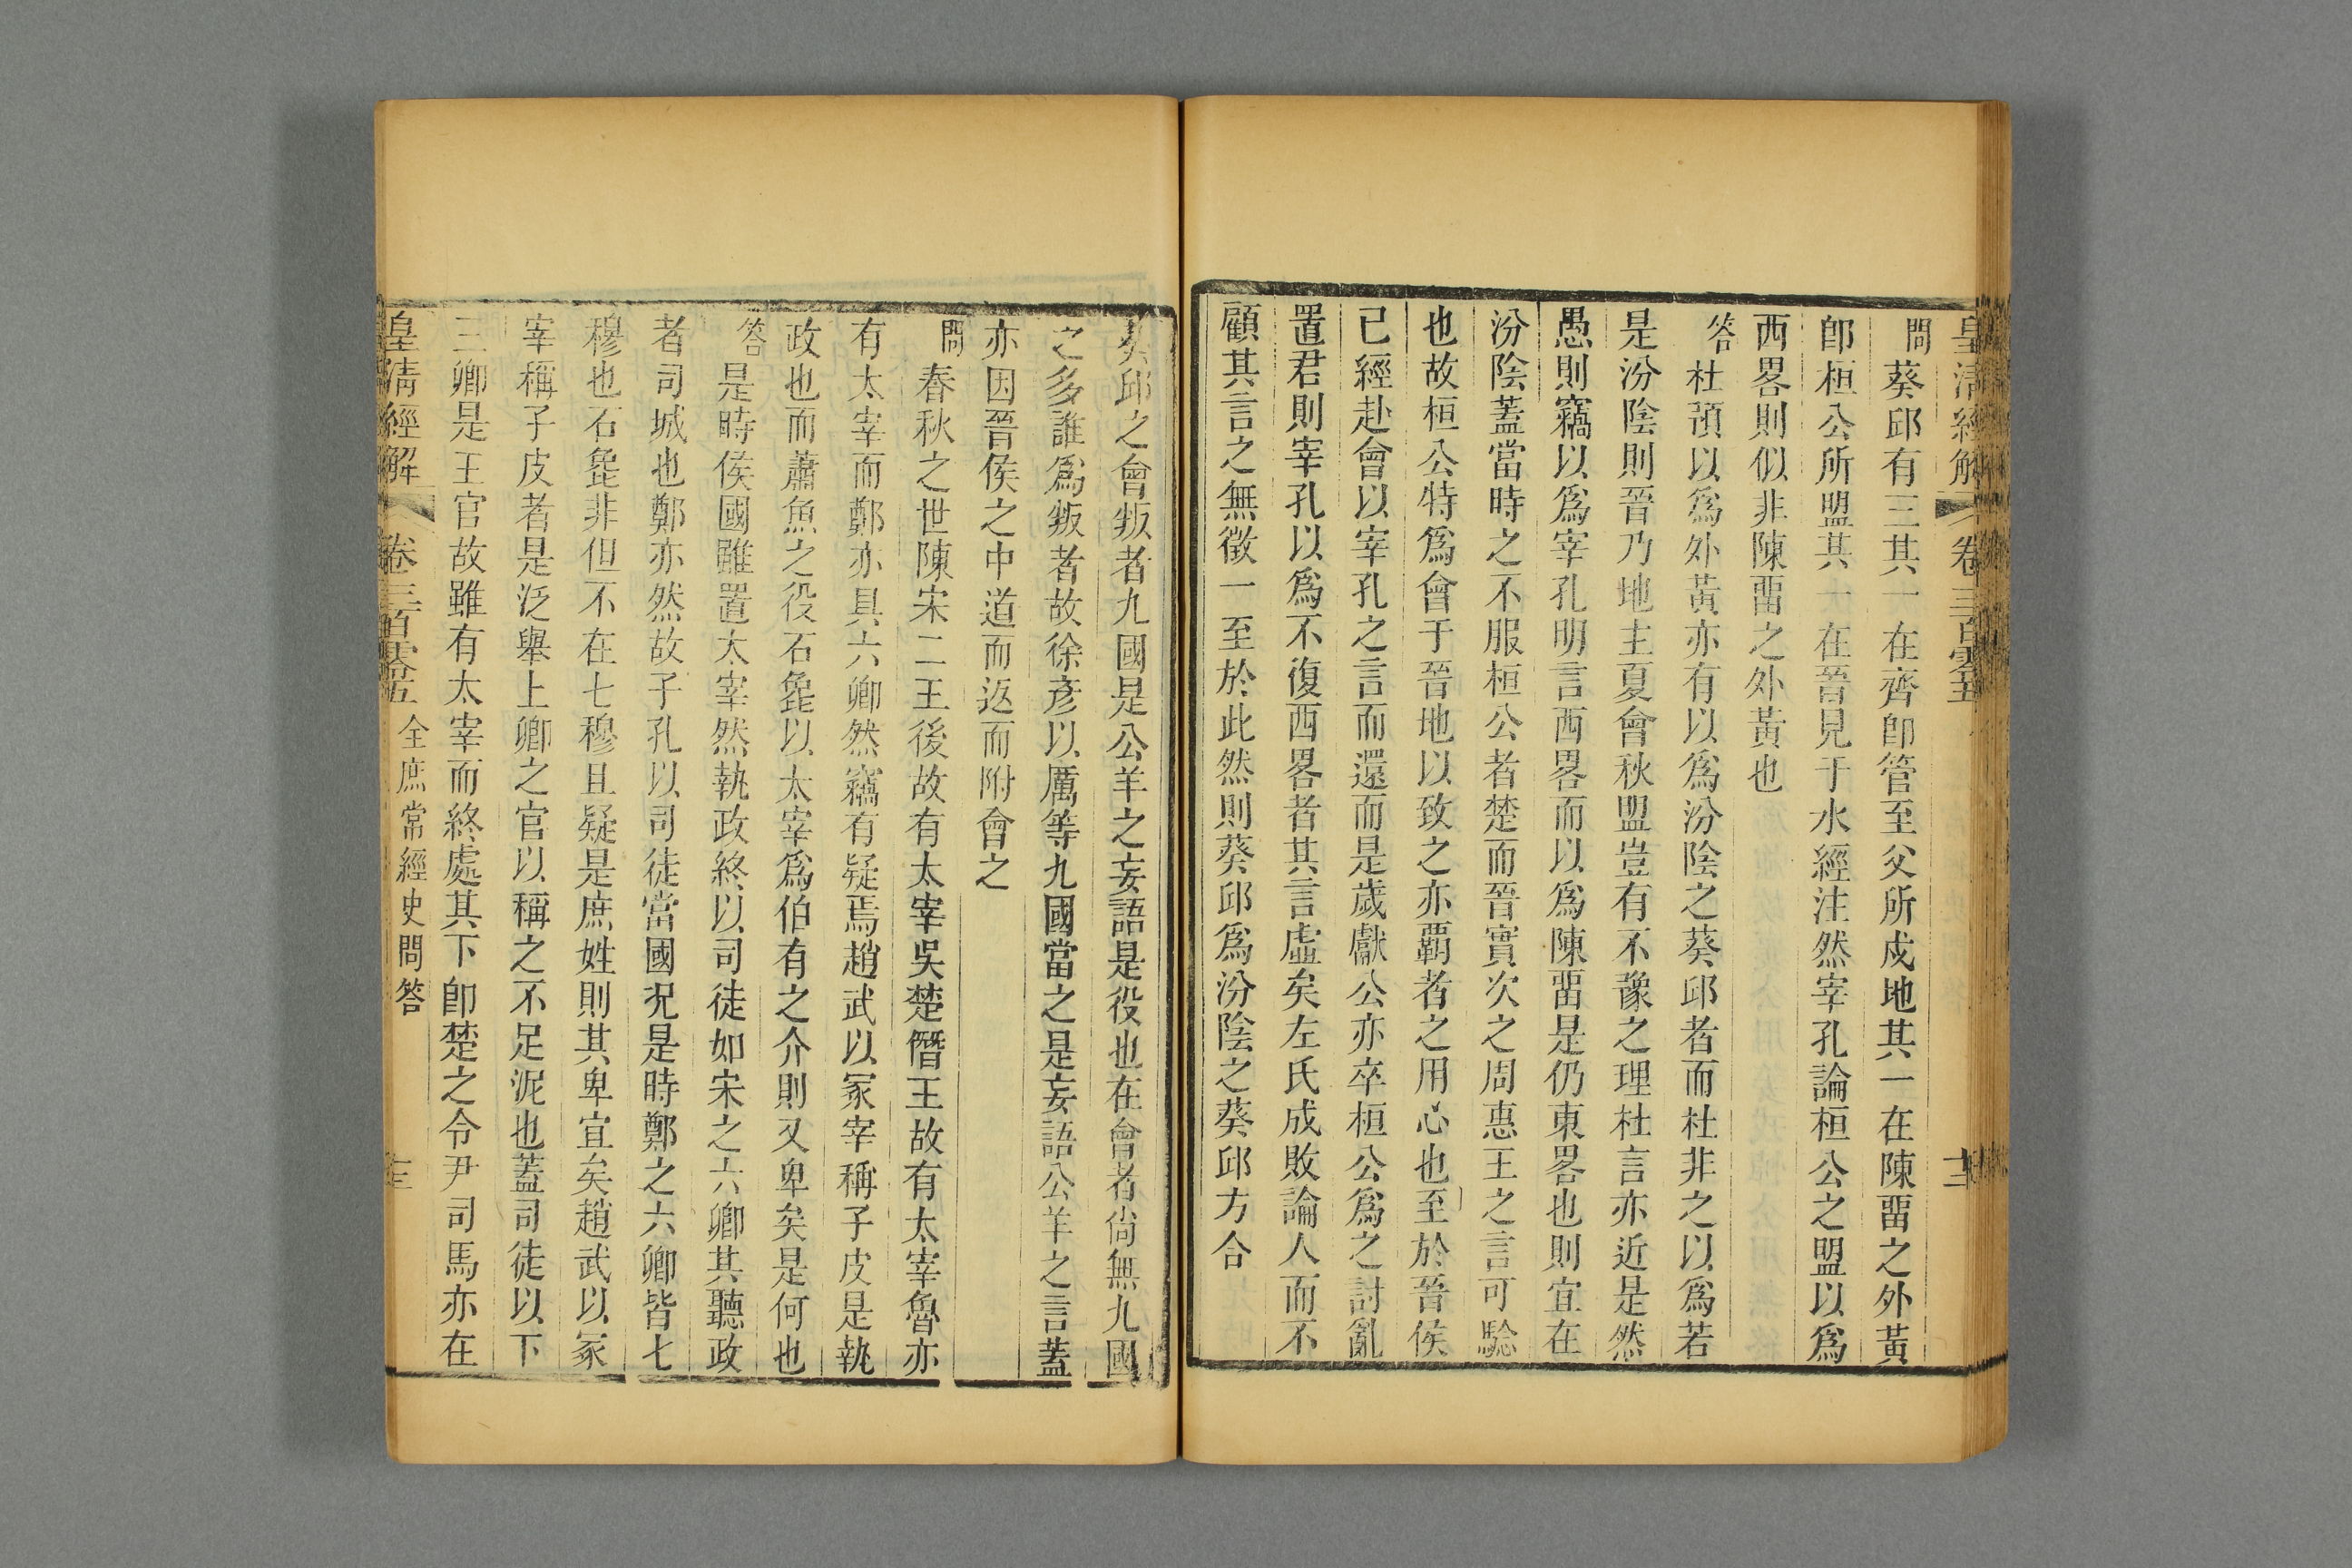 皇清經解 卷三百零五 十二
問葵邱有三其一在齊卽管至父所戍地其一在陳畱之外黃
卽桓公所盟其一在晉見于水經注然宰孔論桓公之盟以爲
西畧則似非陳畱之外黃也
答杜預以爲外黃亦有以爲汾陰之葵邱者而杜非之以爲若
是汾陰則晉乃地主夏會秋盟豈有不豫之理杜言亦近是然
愚則竊以爲宰孔明言西畧而以爲陳畱是仍東畧也則宜在
汾陰蓋當時之不服桓公者楚而晉實次之周惠王之言可騐
也故桓公特爲會于晉地以致之亦覇者之用心也至於晉侯
已經赴會以宰孔之言而還而是歲獻公亦卒桓公爲之討亂
置君則宰孔以爲不復西畧者其言虛矣左氏成敗論人而不
顧其言之無徵一至於此然則葵邱爲汾陰之葵邱方合
葵邱之會叛者九國是公羊之妄語是役也在會者尙無九國
之多誰爲叛者故徐彥以厲等九國當之是妄語公羊之言蓋
亦因晉侯之中道而返而附會之
問春秋之世陳宋二王後故有太宰吳楚僭王故有太宰魯亦
有太宰而鄭亦具六卿然竊有疑焉趙武以冢宰稱子皮是執
政也而蕭魚之役石㲋以太宰爲伯有之介則又卑矣是何也
答是時侯國雖置太宰然執政終以司徒如宋之六卿其聽政
者司城也鄭亦然故子孔以司徒當國况是時鄭之六卿皆七
穆也石㲋非但不在七穆且疑是庶姓則其卑宜矣趙武以冢
宰稱子皮者是泛舉上卿之官以稱之不足泥也蓋司徒以下
三卿是王官故雖有太宰而終處其下卽楚之令尹司馬亦在
皇清經解 卷三百零五 全庶常經史問答 十三